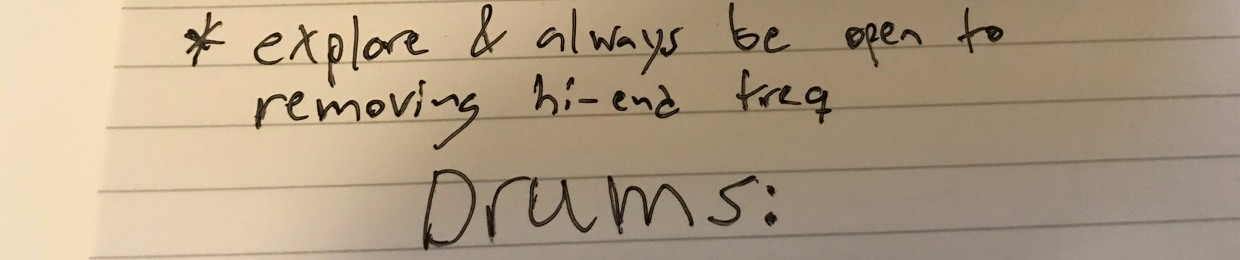 * explore & always be open to
removing hi-end freq
Drums: